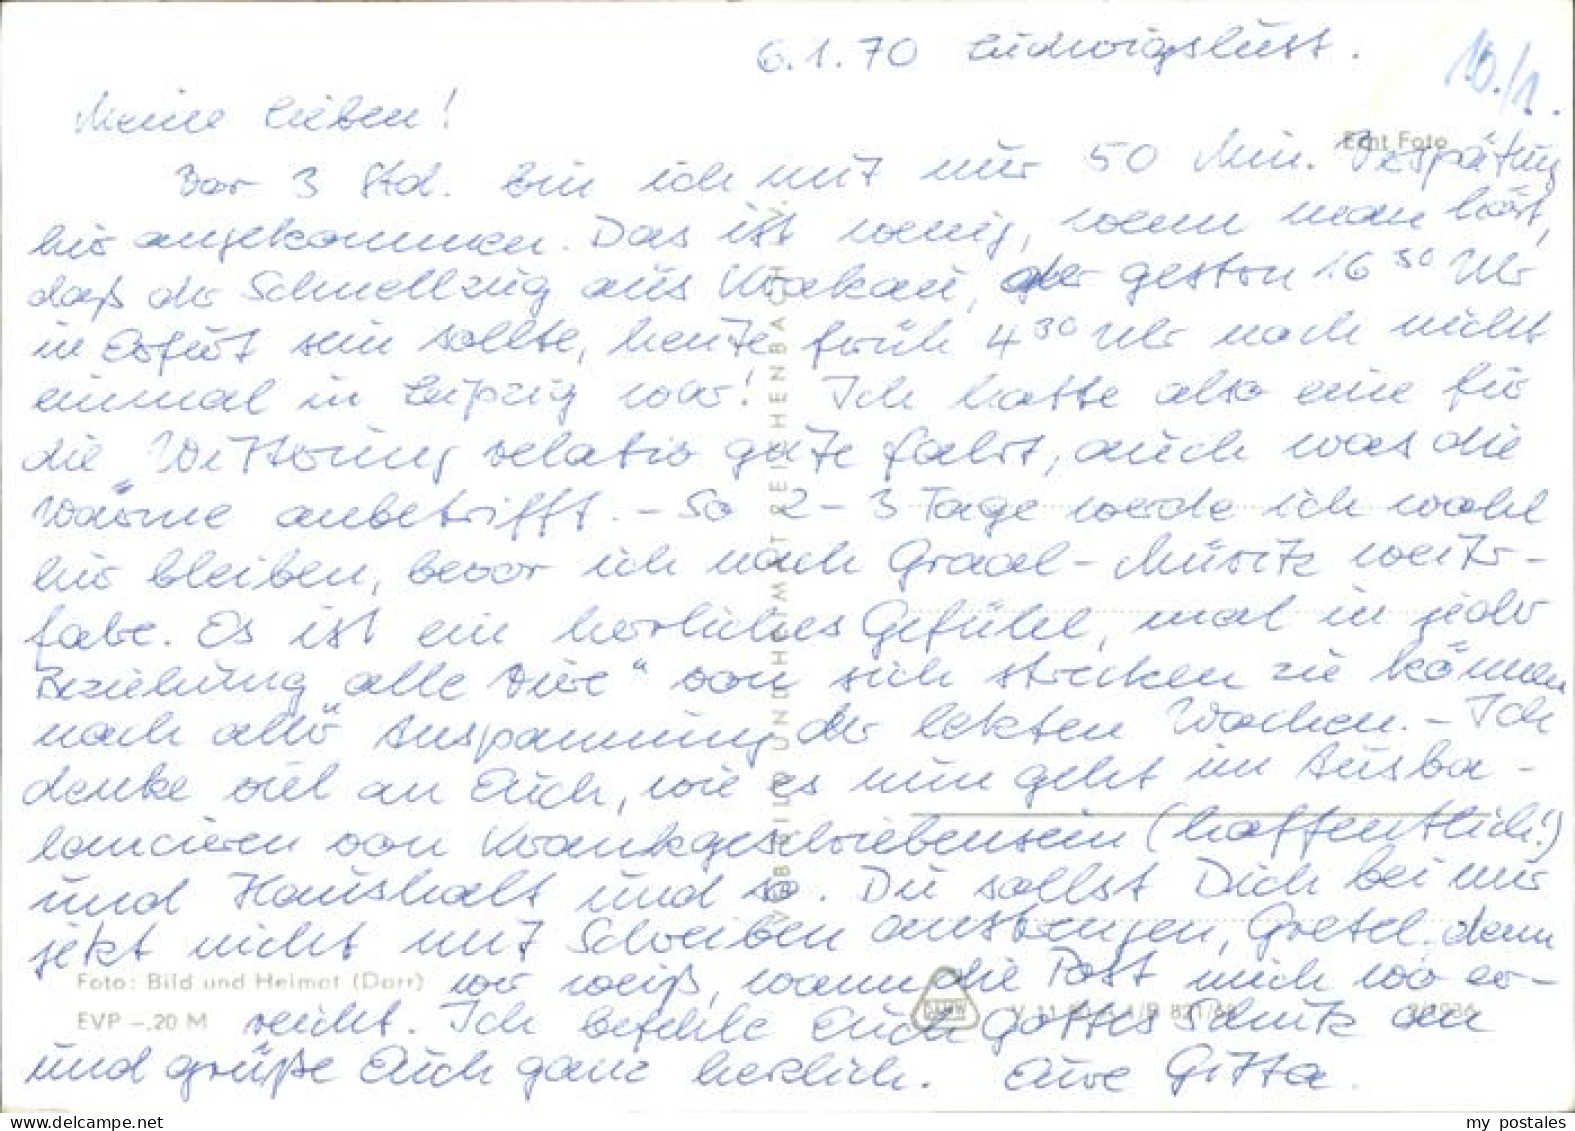 6.1.70 Ludwigslust.
10./1.
Meine Lieben!
Echt Foto
Vor 3 Std. bin ich mit nur 50 Min. Verspätung
hier angekommen. Das ist wenig, wenn man hört,
daß der Schnellzug aus Krakau, der gestern 16³⁰ Uhr
in Erfurt sein sollte, heute früh 4³⁰ Uhr noch nicht
einmal in Leipzig war! Ich hatte also eine für
die Witterung relativ gute Fahrt, auch was die
Wärme anbetrifft. – So 2–3 Tage werde ich wohl
hier bleiben, bevor ich nach Graal-Müritz weiter-
fahre. Es ist ein herrliches Gefühl, mal in jeder
Beziehung „alle Viere" von sich strecken zu können
nach aller Anspannung der letzten Wochen. – Ich
denke viel an Euch, wie es nun geht im Ausba-
lancieren von Krankgeschriebensein (hoffentlich!)
und Haushalt und so. Du sollst Dich bei mir
jetzt nicht mit Schreiben anstrengen, Gretel, denn
wer weiß, wann die Post mich wo er-
reicht. Ich befehle Euch Gottes Schutz an
und grüße Euch ganz herzlich. Eure Gitta.
Foto: Bild und Heimat (Darr)
EVP –.20 M
VEB BILD UND HEIMAT REICHENBACH I. V.
my postales